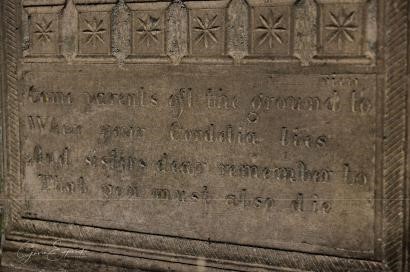 view
Come parents oft the ground to
Where your Cordelia lies
And sisters dear remember to
That you must also die